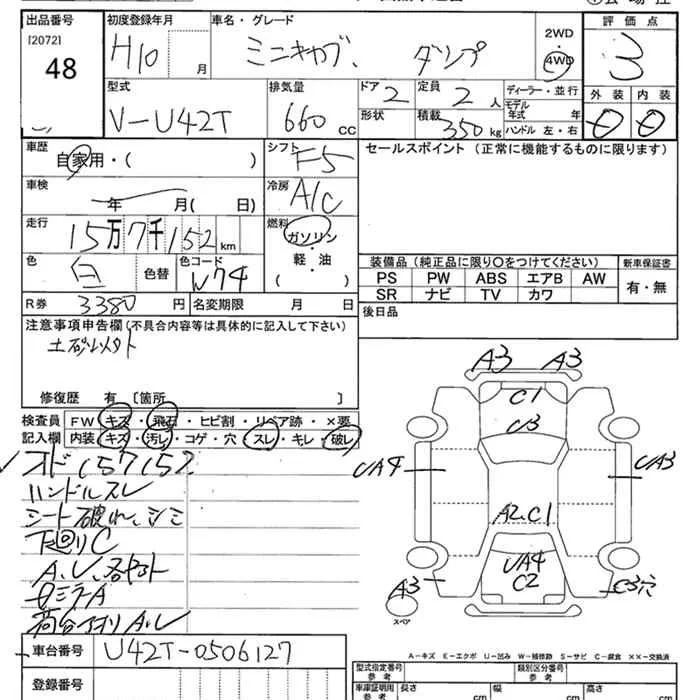 出品番号 初度登録年月 車名・グレード 2WD 評価点
[2072] 48 H10 月 ミニキャブ、 ダンプ 4WD 3
型式 排気量 ドア 定員 ディーラー・並行 外装 内装
V-U42T 660 CC 2 2 人 モデル年式 年
形状 積載 350 kg ハンドル 左・右
車歴 シフト セールスポイント (正常に機能するものに限ります)
自家用・( ) F5
車検 冷房
年 月( 日) A/C
走行 燃料
15万7千152 km ガソリン・軽・油
色 色替 色コード ( ) 装備品 (純正品に限り〇をつけてください) 新車保証書
白 W74 PS PW ABS エアB AW 有・無
SR ナビ TV カワ
R券 3380 円 名変期限 月 日 後日品
注意事項申告欄 (不具合内容等は具体的に記入して下さい)
土砂以外
修復歴 有 〔箇所 〕
検査員 FW キズ・飛石・ヒビ割・リペア跡・×要
記入欄 内装 キズ・汚レ・コゲ・穴 スレ・キレ・破レ
オド157152
ハンドルスレ
シート破れ、シミ
下廻りC
A、U、
A
A、U
A3 A3
C1
U3
UA4 UA3
A2.C1
UA4
C2
A3 C3穴
スペア
A-キズ E-エクボ U-凹み W-補修跡 S-サビ C-腐食 ××-交換済
車台番号 U42T-0506127
登録番号
型式指定番号 参考 類別区分番号 参考
車庫証明用 参考 長さ cm 幅 cm 高さ cm